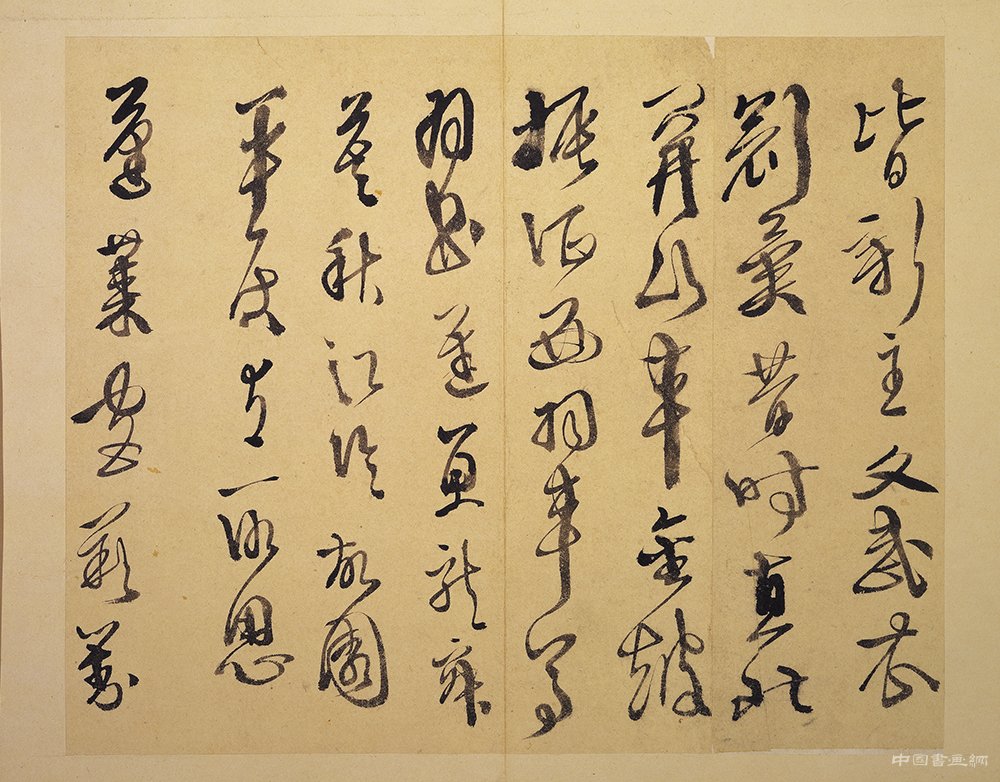 皆新主文武衣
冠異昔時直北
關山車金鼓
振征西羽車馬
羽書遲魚龍寂
寞秋江冷故國
平居有所思
蓬萊宮闕對
中國書畫網